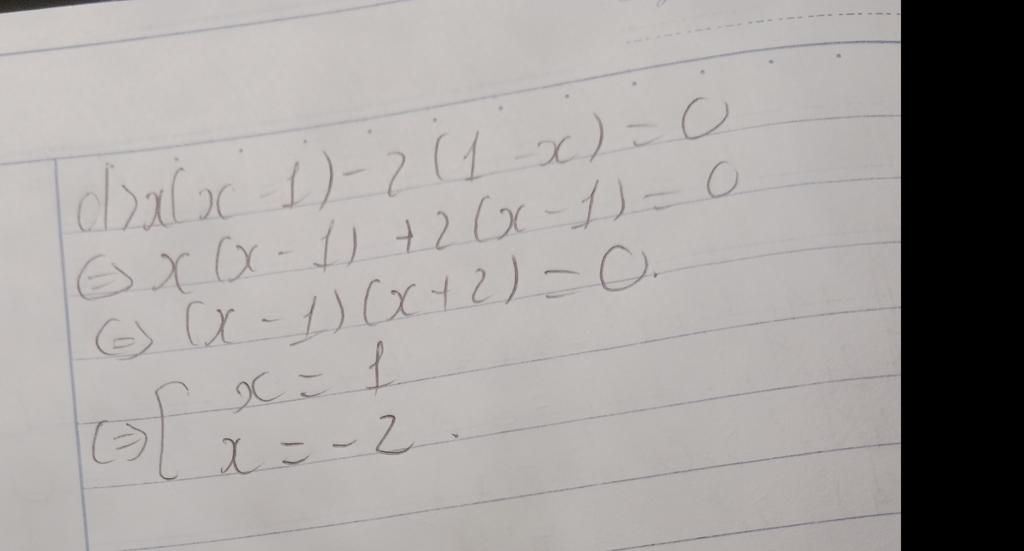 d) x(x - 1) - 2(1 - x) = 0
⇔ x(x - 1) + 2(x - 1) = 0
⇔ (x - 1)(x + 2) = 0.
⇔ [ x = 1
x = -2.